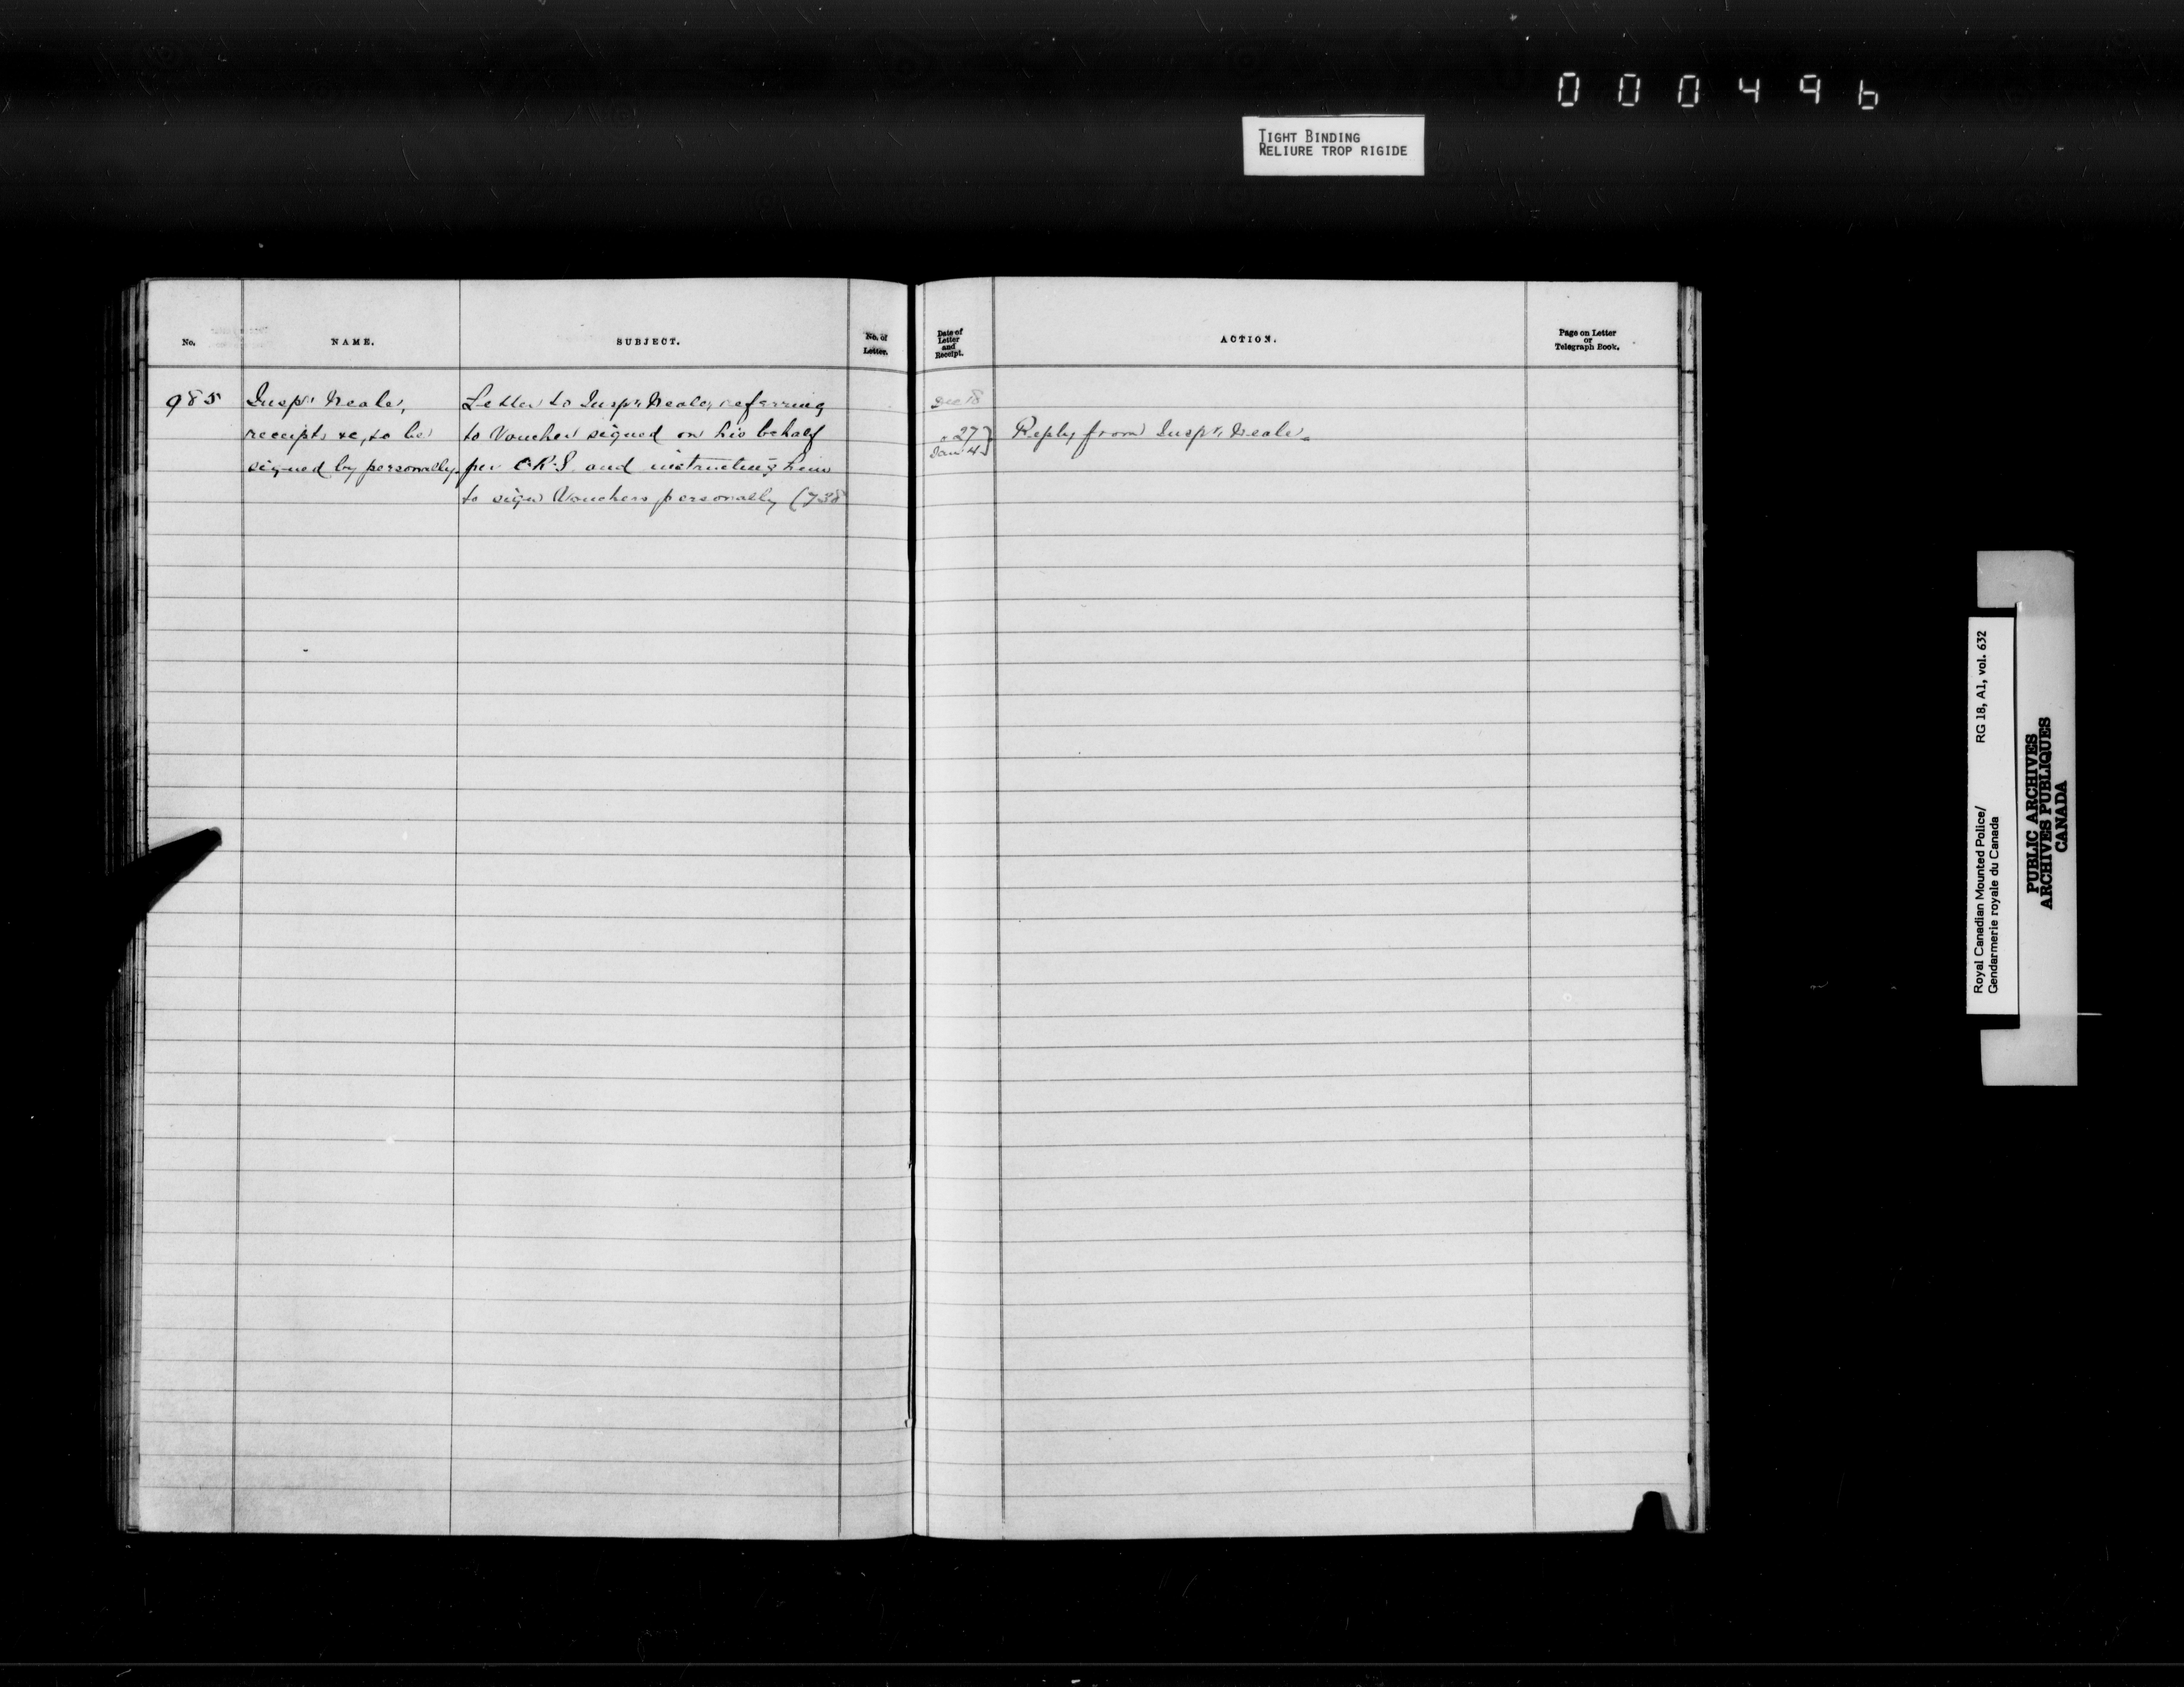 000496
TIGHT BINDING
RELIURE TROP RIGIDE
No.
NAME.
SUBJECT.
No. of
Letter.
985
Insp'r Neale,
receipts &c, to be
signed by personally.
Letter to Insp'r Neale, referring
to Voucher signed on his behalf
per C.R.S. and instructing him
to sign Vouchers personally (738
Date of
Letter
and
Receipt.
ACTION.
Page on Letter
or
Telegraph Book.
Dec 18
" 27 }
Jan 4 }
Reply from Insp'r Neale.
Royal Canadian Mounted Police/ RG 18, A1, vol. 632
Gendarmerie royale du Canada
PUBLIC ARCHIVES
ARCHIVES PUBLIQUES
CANADA